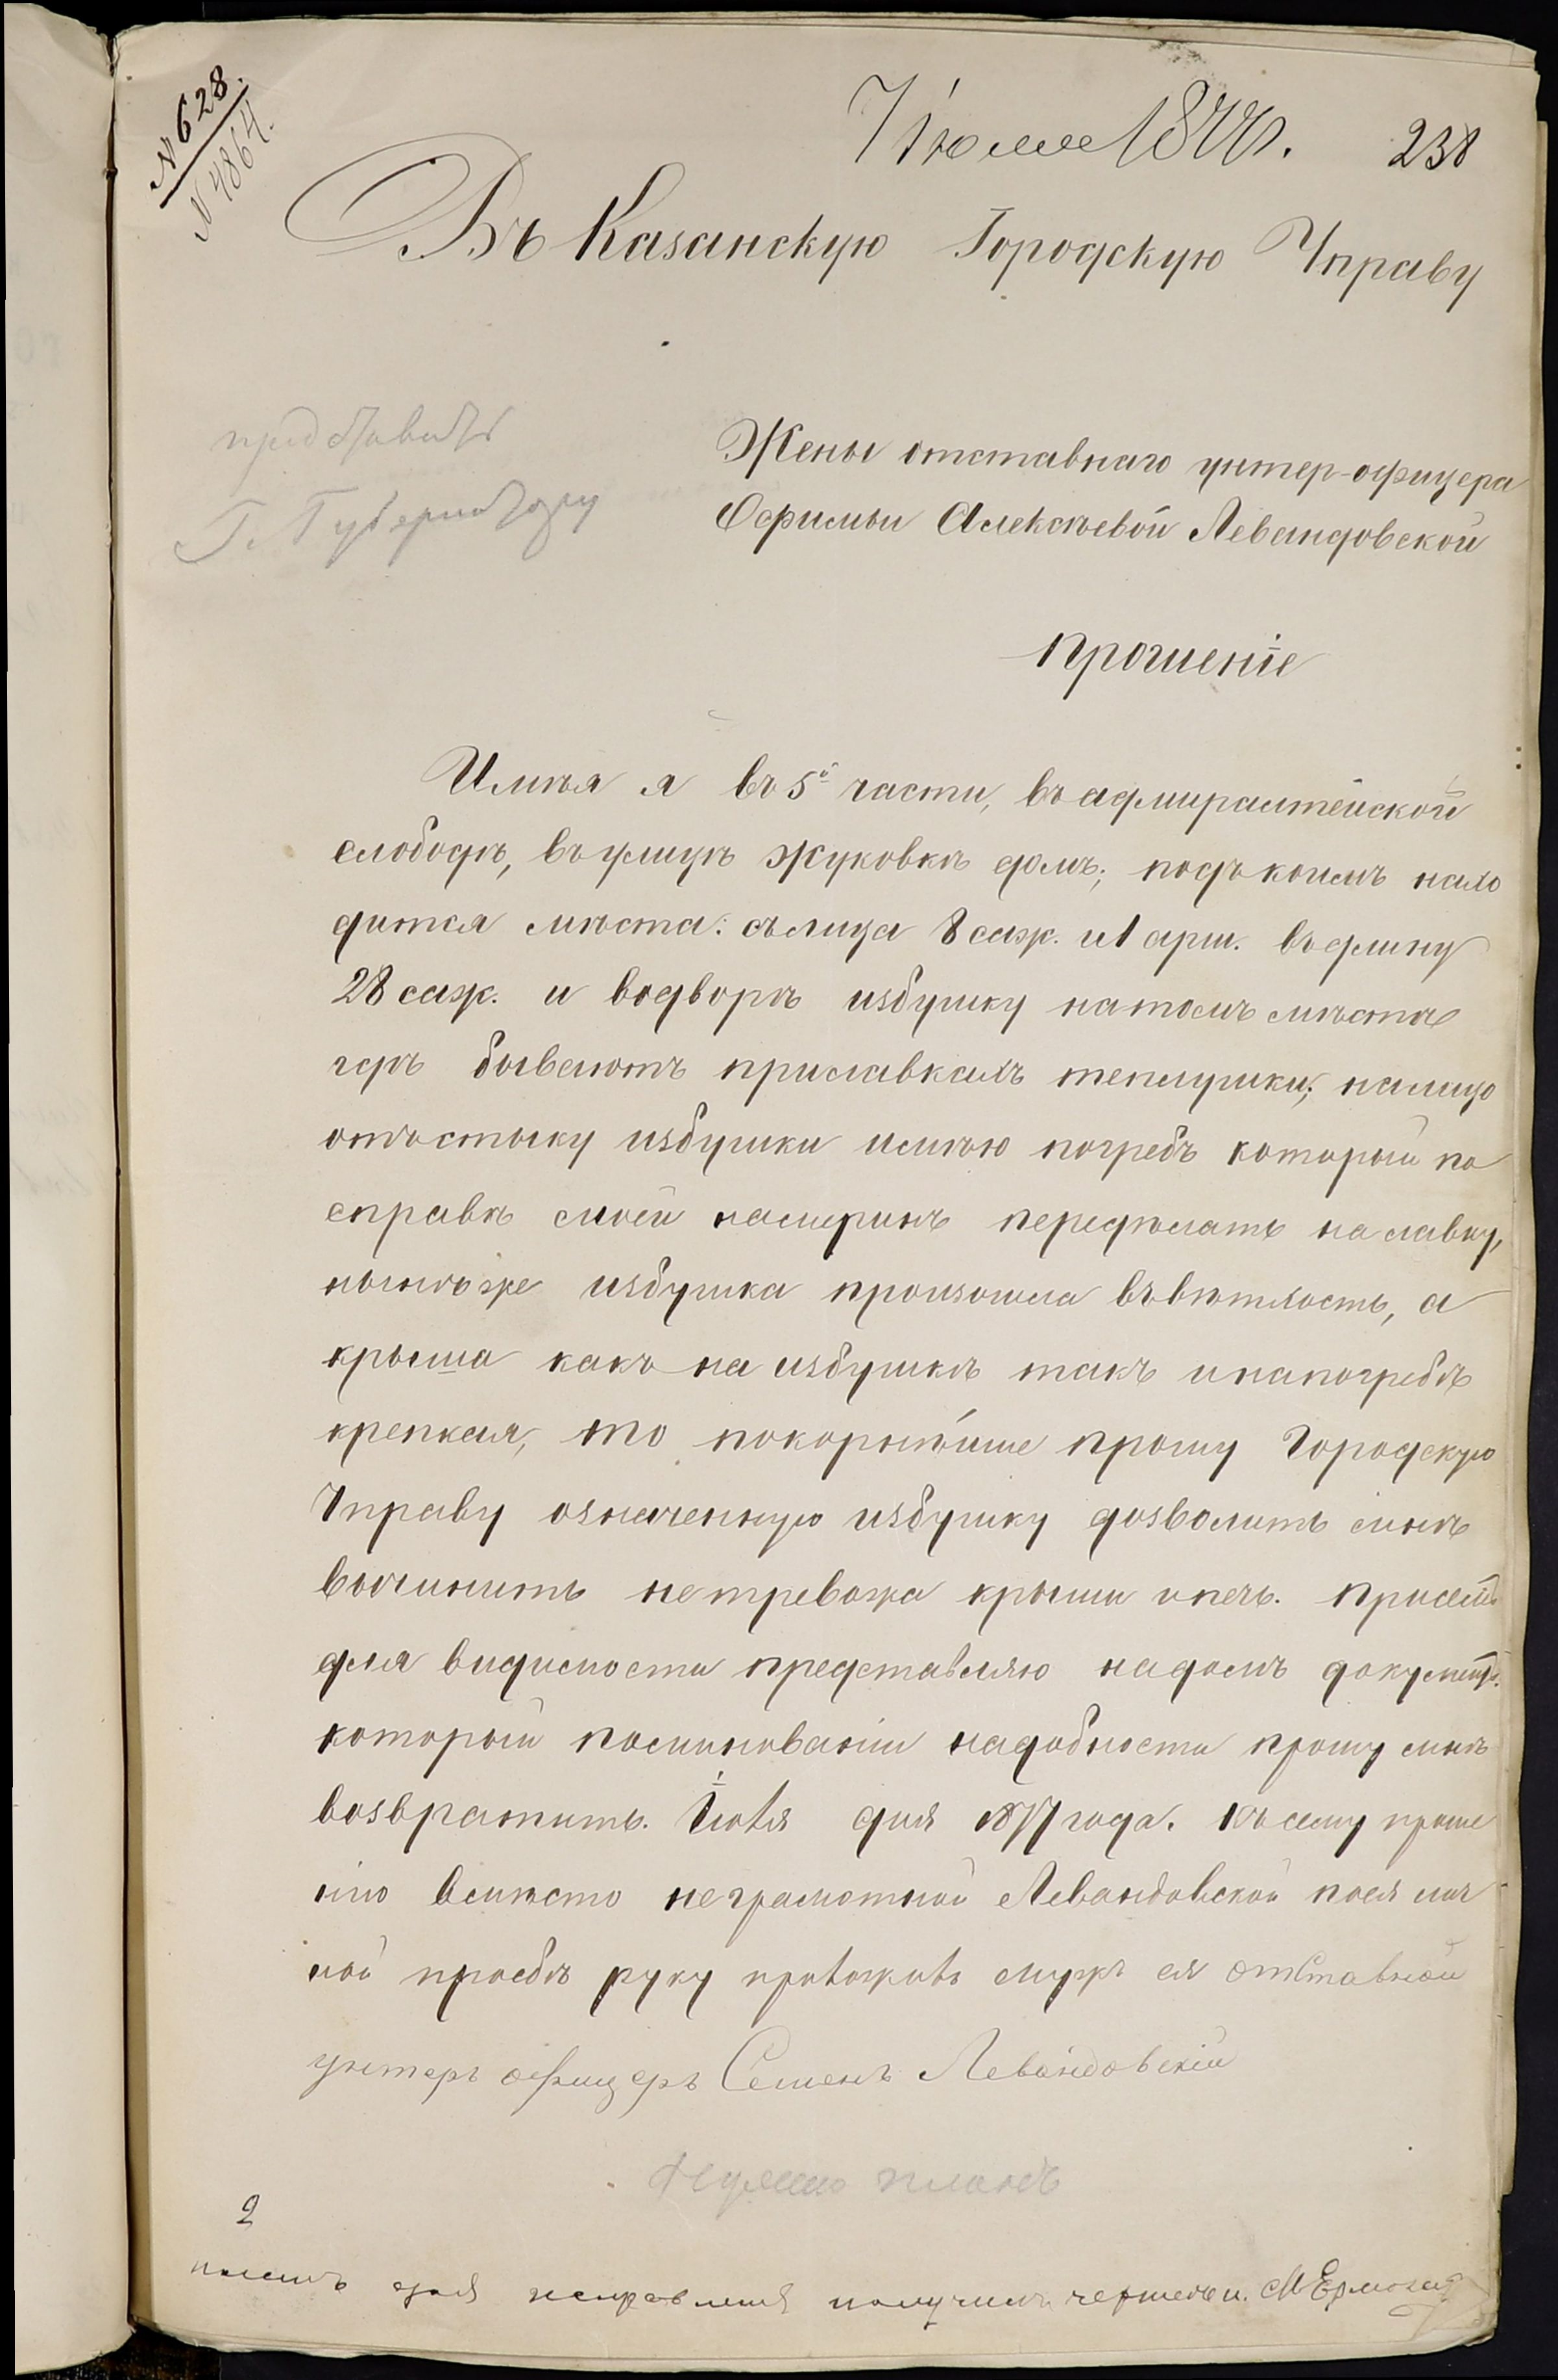 № 628.
№ 4864.
7 Июля 1877 г. 238
Въ Казанскую Городскую Управу
представить
Г. Губернатору
Жены отставнаго унтер-офицера
Ефимьи Алексѣевой Левандовской
Прошеніе
Имѣя я въ 5й части, въ адмиралтейской
слободѣ, въ улицѣ Жуковкѣ домъ; подъ коимъ нахо
дится мѣста: съ лица 8 саж. и 1 арш. въ длину
28 саж. и во дворѣ избушку на томъ мѣсте
гдѣ бываютъ при лавкахъ теплушки; на лицо
отъ стыку избушки имѣю погребъ который по
справкѣ моей намеринъ передѣлать на лавку,
нынѣ же избушка произошла въ вѣтхость, а
крыша какъ на избушкѣ такъ и на погребѣ
крепкая, то покорнѣйше прошу Городскую
Управу означенную избушку дозволить мнѣ
вычинить не тревожа крыши и печь. При семъ
для видимости представляю на домъ документъ
который по минованіи надобности прошу мнѣ
возвратить. Іюля дня 1877 года. Къ сему проше
нію вмѣсто неграмотной Левандовской по ея лич
ной просбѣ руку приложилъ мужъ ея отставной
унтеръ офицеръ Семенъ Левандовскій
Нужно планъ
2
планъ для исправленія получилъ М Ермолаевъ